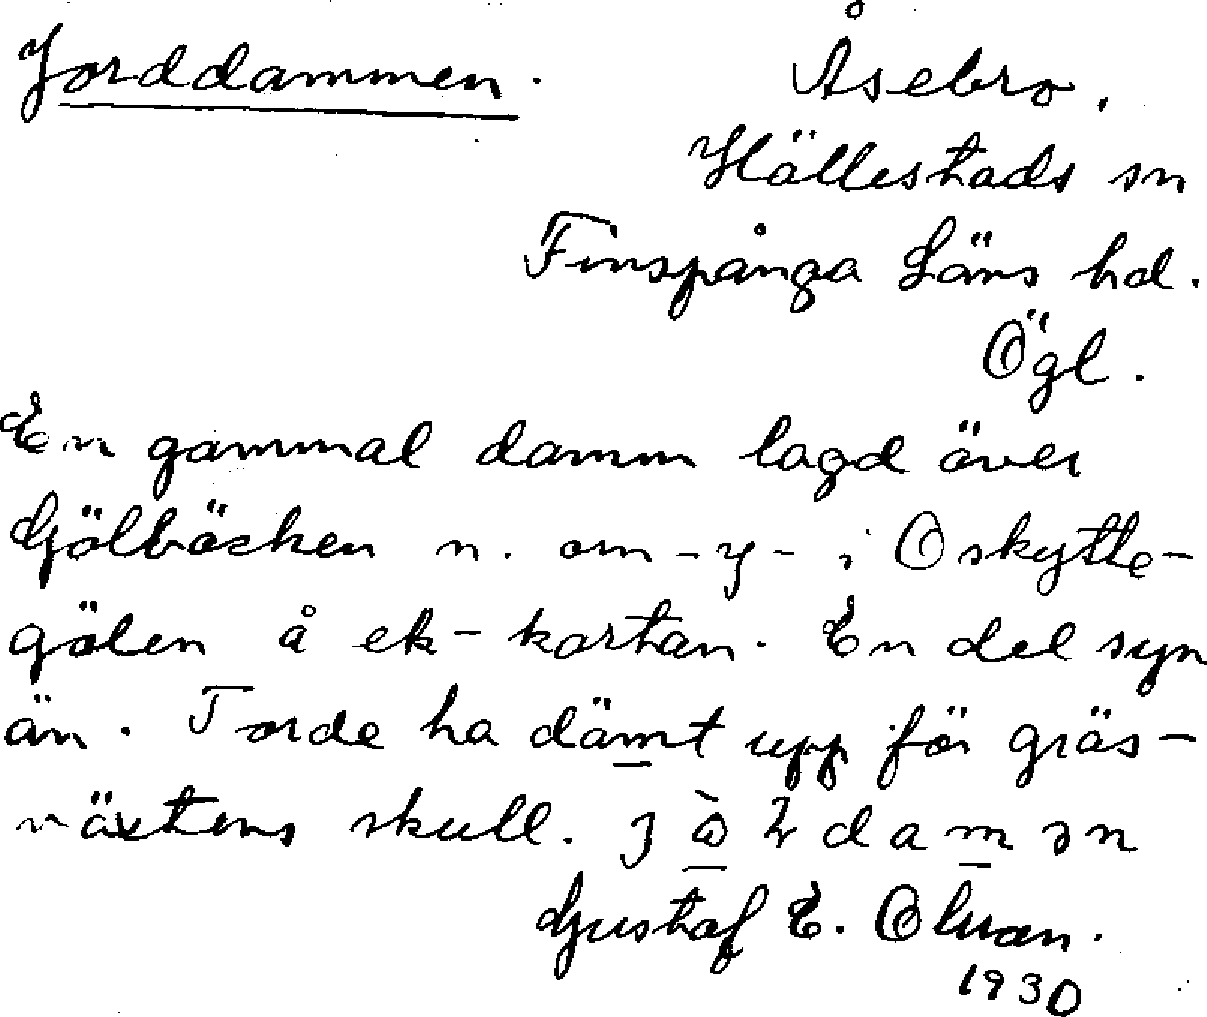 Jorddammen.
Åsebro,
Hällestads sn
Finspånga Läns hd.
Ögl.
En gammal damm lagd över
Gölbäcken n. om -y- i Oskytte-
gölen å ek-kartan. En del syn
än. Torde ha dämt upp för gräs-
växtens skull.
Gustaf E. Olsson.
1930